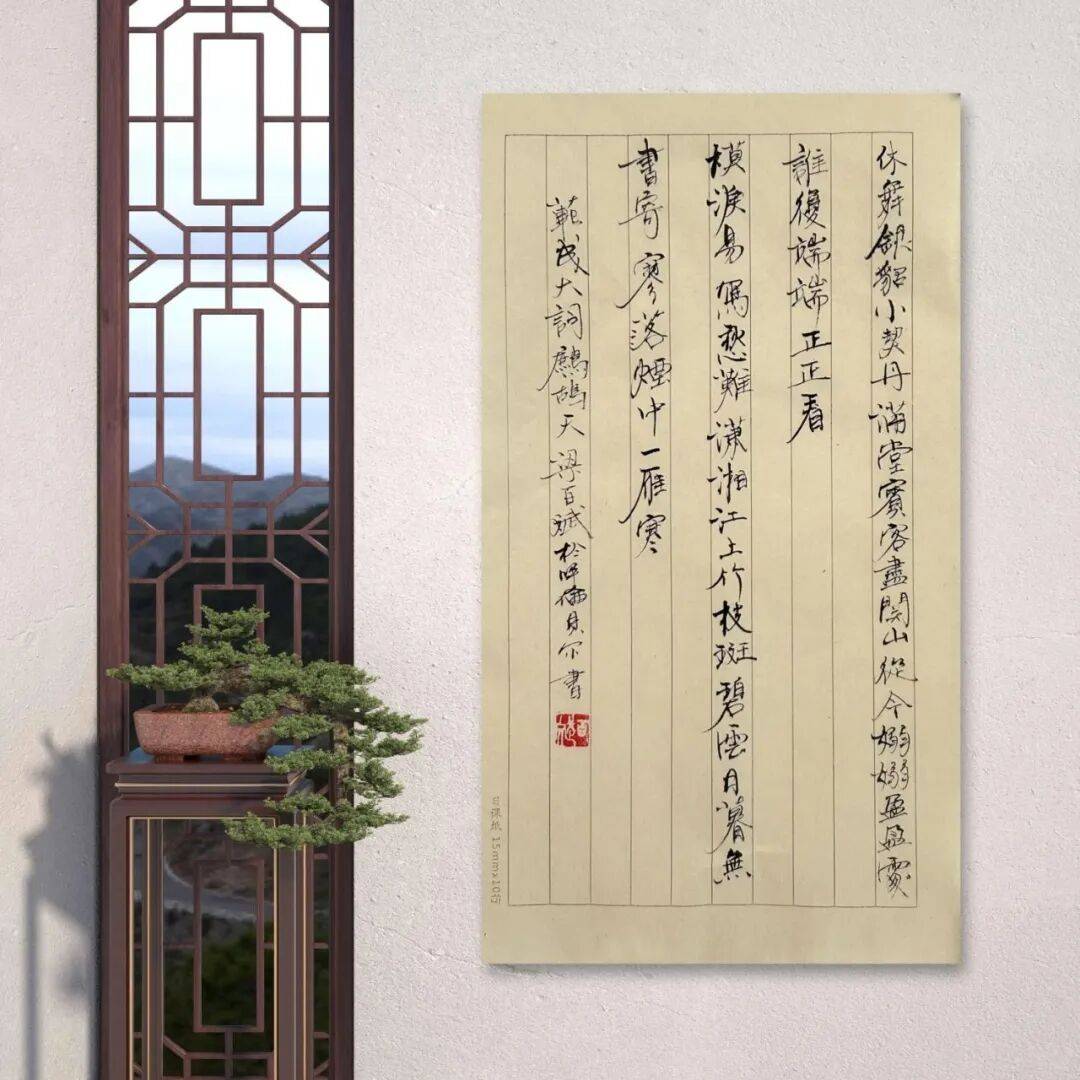 休舞銀貂小契丹滿堂賓客盡関山從今嫋嫋盈盈處
誰復端端正正看
模淚易寫愁難瀟湘江上竹枝斑碧雲日暮無
書寄寥落煙中一雁寒
範成大詞鷓鴣天梁百斌於呼倫貝尔書
日課紙 15mmx10行